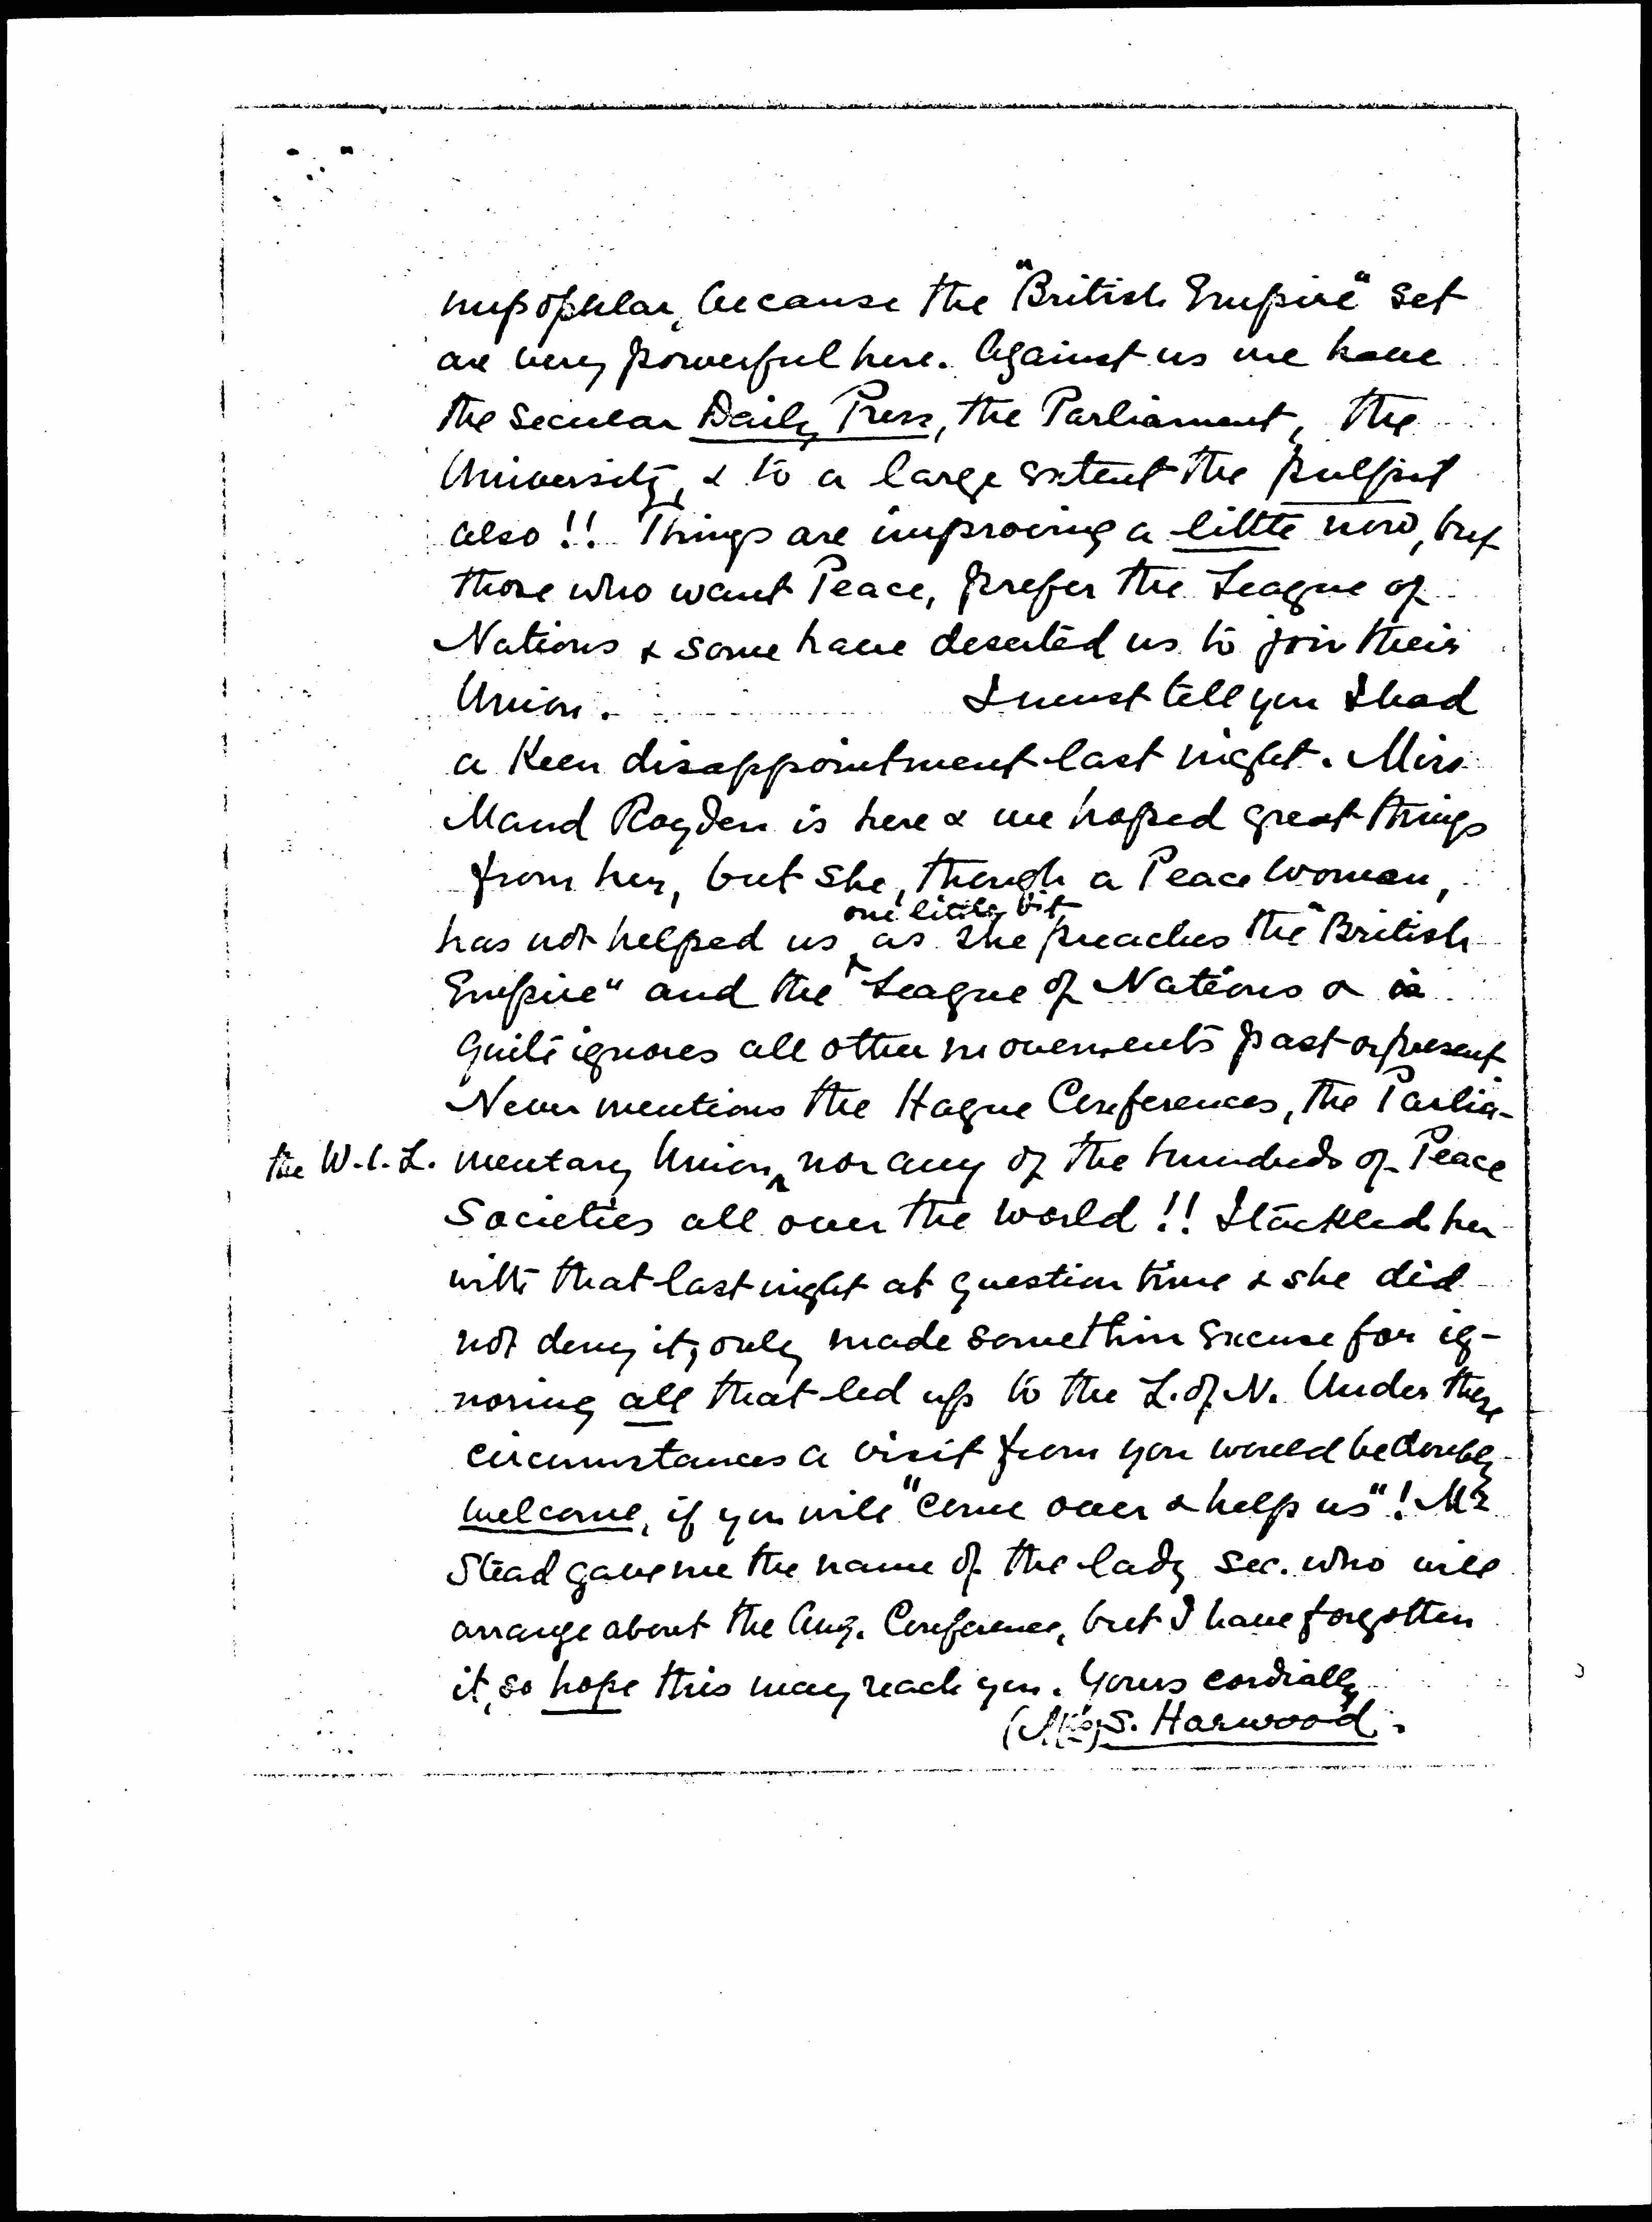 unpopular, because the "British Empire" set
are very powerful here. Against us we have
the secular Daily Press, the Parliament, the
University, & to a large extent the pulpit
also!! Things are improving a little now, but
those who want Peace, prefer the League of
Nations & some have deserted us to join their
Union. I must tell you I had
a keen disappointment last night. Miss
Maud Royden is here & we hoped great things
from her, but she, though a Peace Woman,
one little bit,
has not helped us as she preaches the "British
Empire" and the "League of Nations &
quite ignores all other movements past or present
Never mentions the Hague Conferences, the Parlia-
the W.I.L. mentary Union, nor any of the hundreds of Peace
Societies all over the world!! I tackled her
with that last night at question time & she did
not deny it, only made some thin excuse for ig-
noring all that led up to the L. of N. Under these
circumstances a visit from you would be doubly
welcome, if you will "come over & help us"! Mr
Stead gave me the name of the lady sec. who will
arrange about the Aug. Conference, but I have forgotten
it, so hope this may reach you. Yours cordially
(Mrs) S. Harwood.